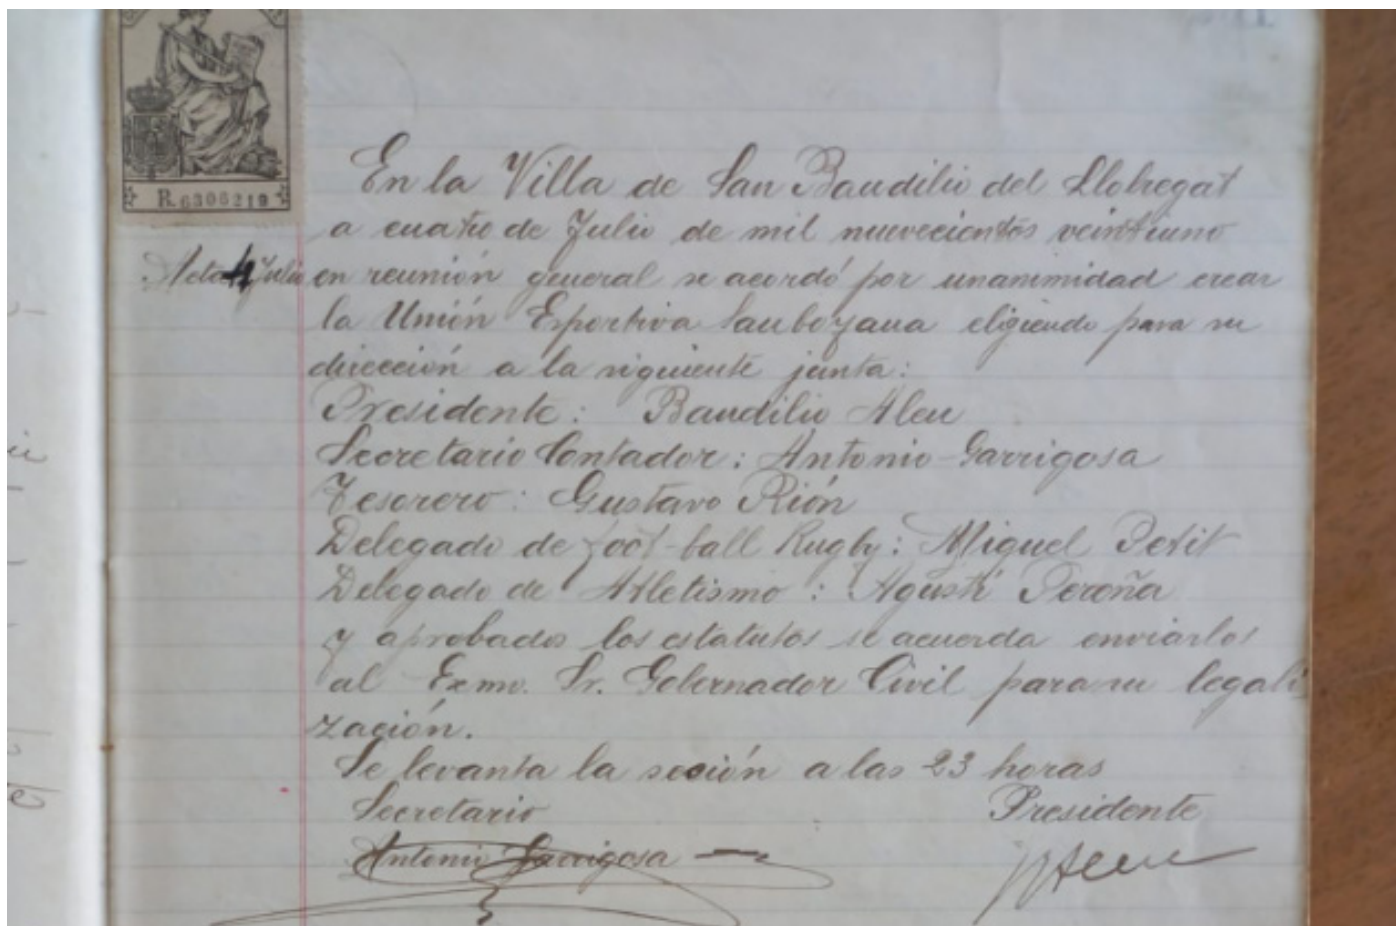 R.6306219
En la Villa de San Baudilio del Llobregat
a cuatro de Julio de mil nuevecientos veintiuno
Acta 4 Julio
en reunión general se acordó por unanimidad crear
la Unión Esportiva Sanboyana eligiendo para su
dirección a la siguiente junta:
Presidente: Baudilio Aleu
Secretario Contador: Antonio Garrigosa
Tesorero: Gustavo Rión
Delegado de foot-ball Rugby: Miguel Petit
Delegado de Atletismo: Agustí Peroña
y aprobados los estatutos se acuerda enviarlos
al Exmo. Sr. Gobernador Civil para su legali
zación.
Se levanta la sesión a las 23 horas
Secretario Presidente
Antonio Garrigosa BAleu